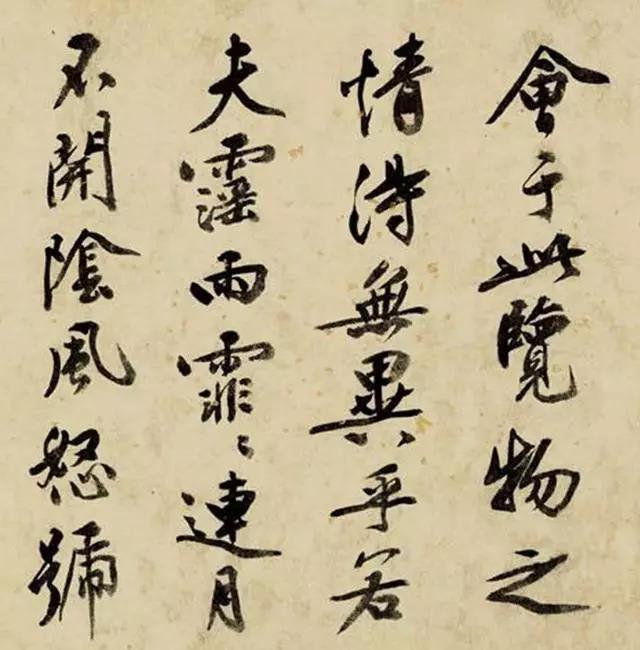 會于此覽物之
情得無異乎若
夫霪雨霏〻連月
不開陰風怒號